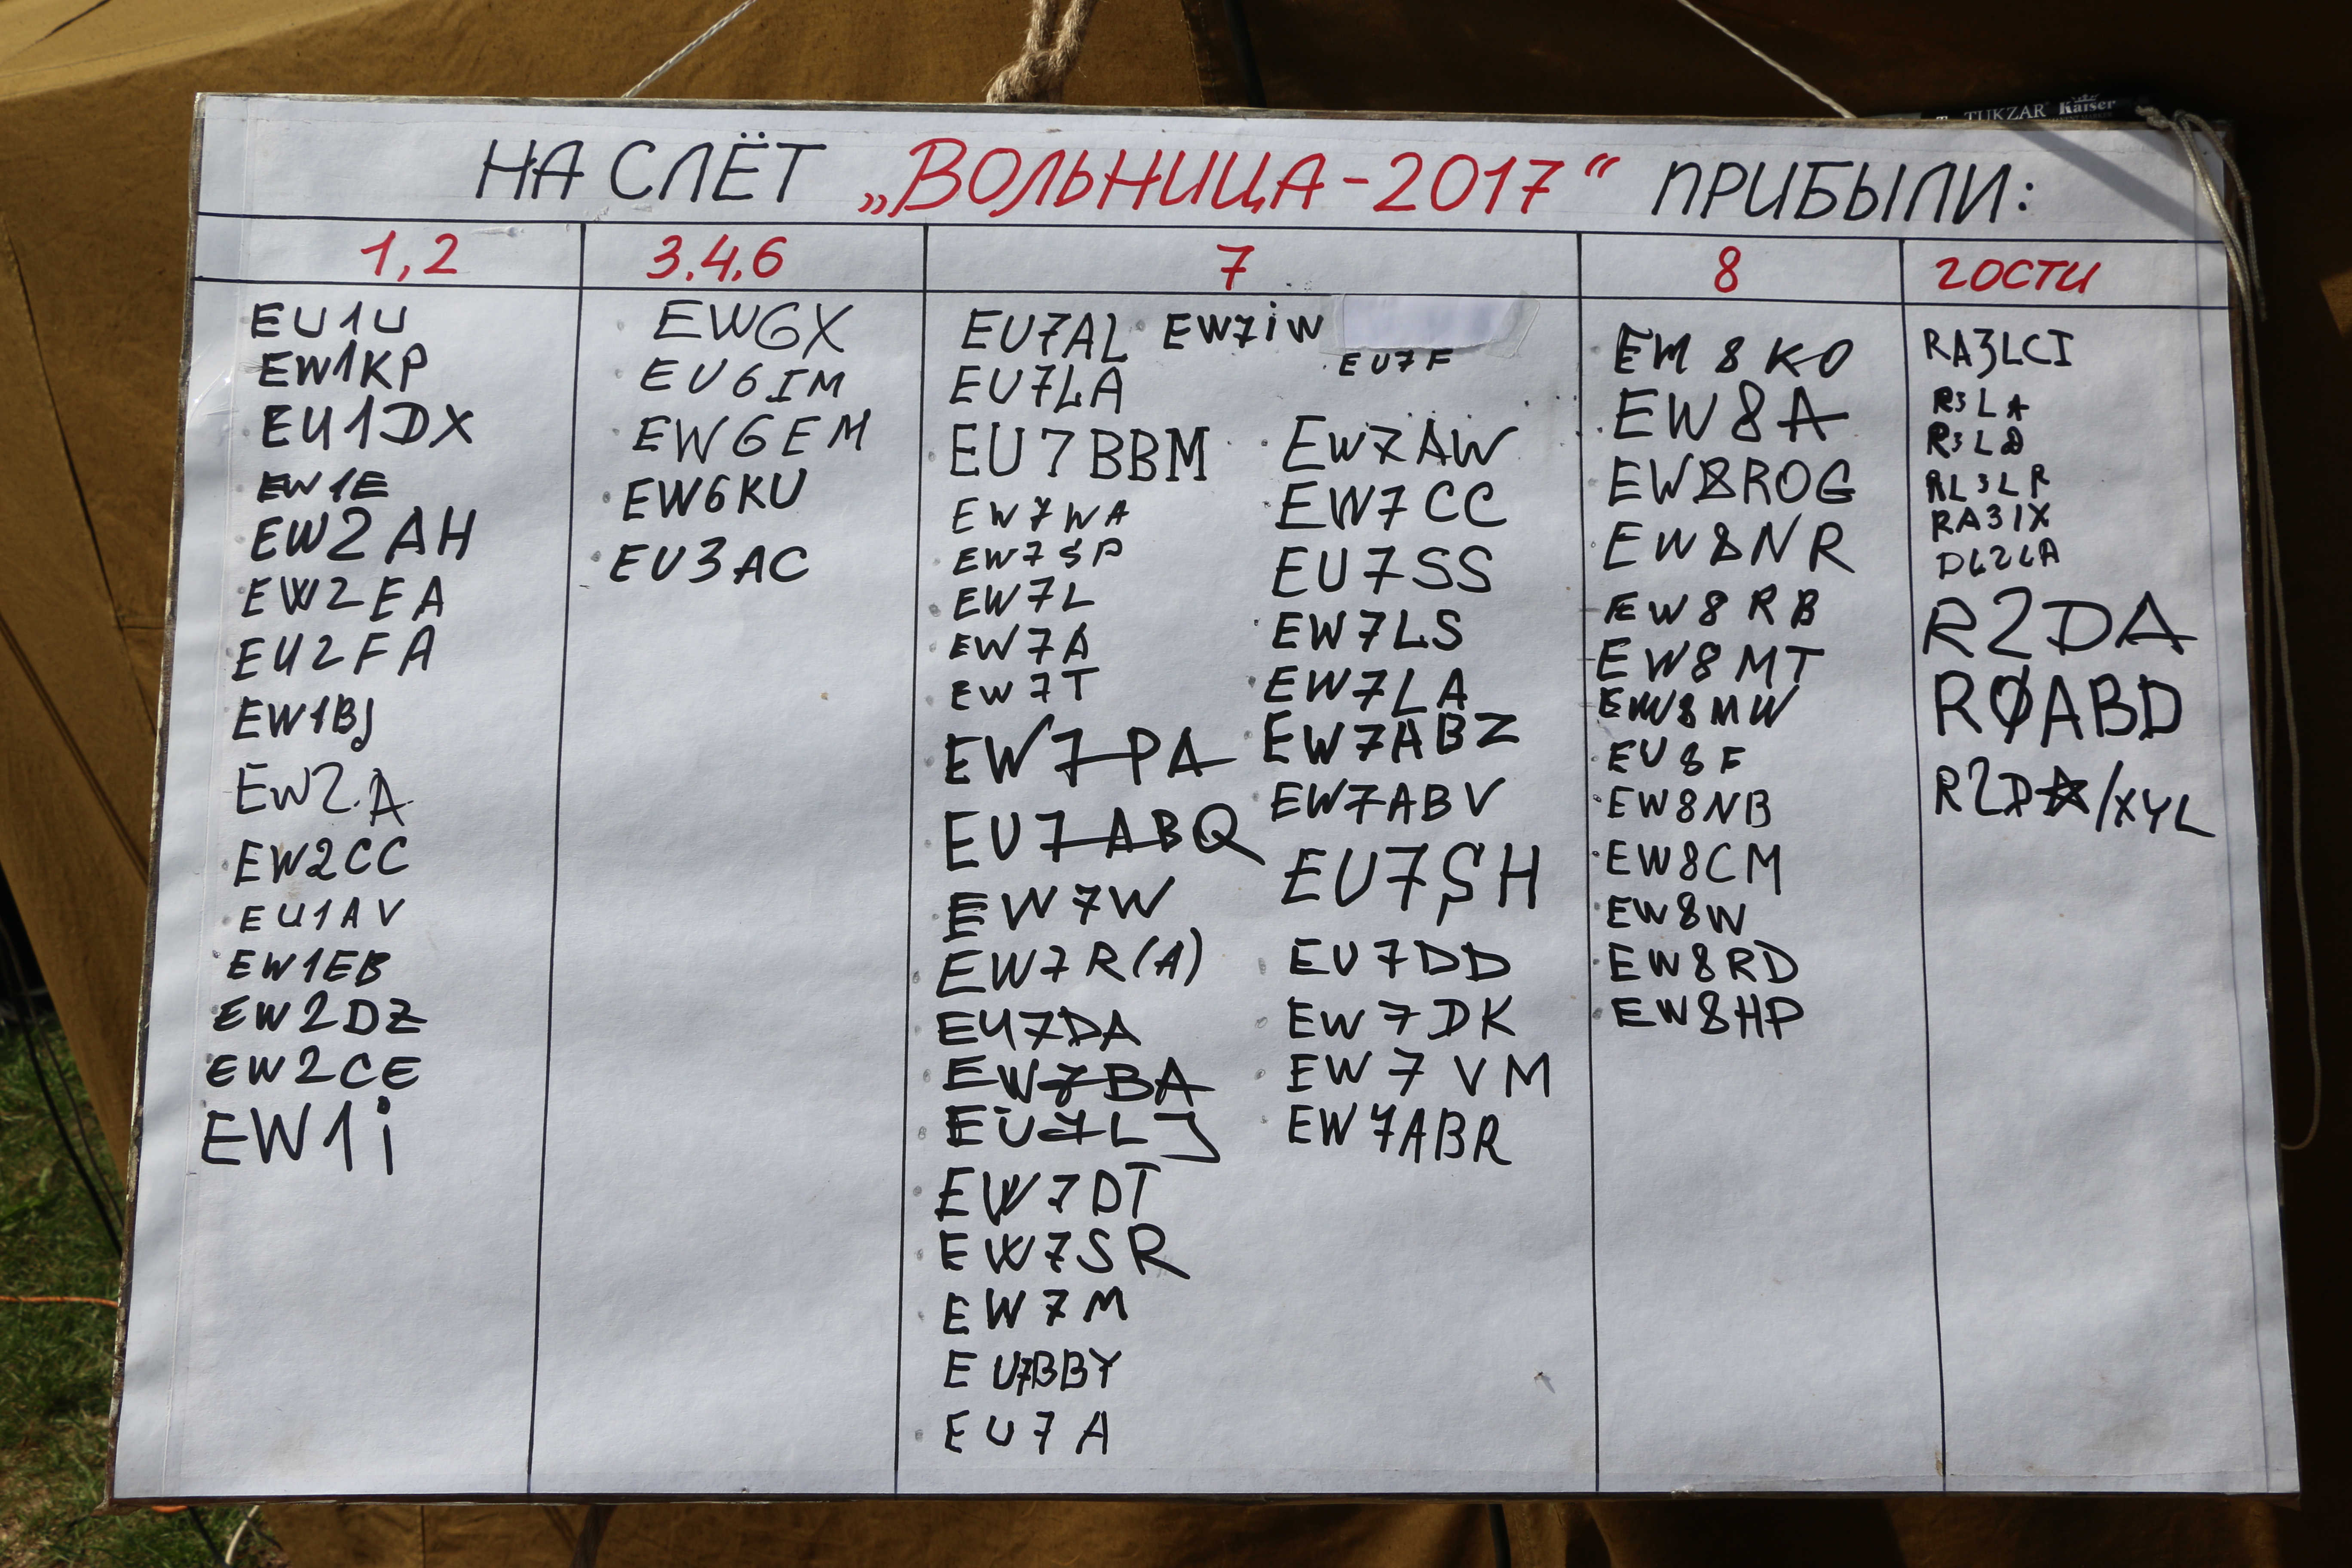 TUKZAR Kaiser
НА СЛЁТ „ВОЛЬНИЦА-2017“ ПРИБЫЛИ:
1,2
EU1U
EW1KP
EU1DX
EW1E
EW2AH
EW2EA
EU2FA
EW1BJ
EW2A
EW2CC
EU1AV
EW1EB
EW2DZ
EW2CE
EW1i
3.4.6
EW6X
EU6IM
EW6EM
EW6KU
EU3AC
7
EU7AL
EU7LA
EU7BBM
EW7WA
EW7SP
EW7L
EW7A
EW7T
EW7PA
EU7ABQ
EW7W
EW7R(A)
EU7DA
EW7BA
EU7LJ
EW7DT
EW7SR
EW7M
EU7BBY
EU7A
EW7iW
EU7F
EW7AW
EW7CC
EU7SS
EW7LS
EW7LA
EW7ABZ
EW7ABV
EU7SH
EU7DD
EW7DK
EW7VM
EW7ABR
8
EW8A
EW8ROG
EW8NR
EW8RB
EW8MT
EW8MW
EU8F
EW8NB
EW8CM
EW8W
EW8RD
EW8HP
гости
RA3LCI
R3LA
RL3LR
RA3IX
DL2LA
R2DA
RØABD